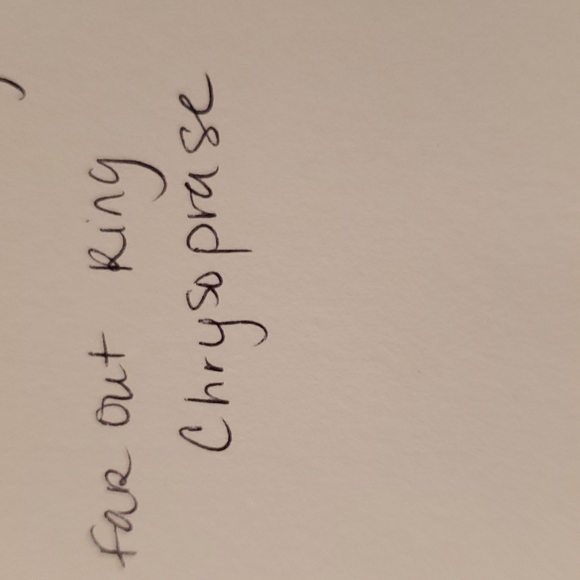 far out Ring
Chrysoprase